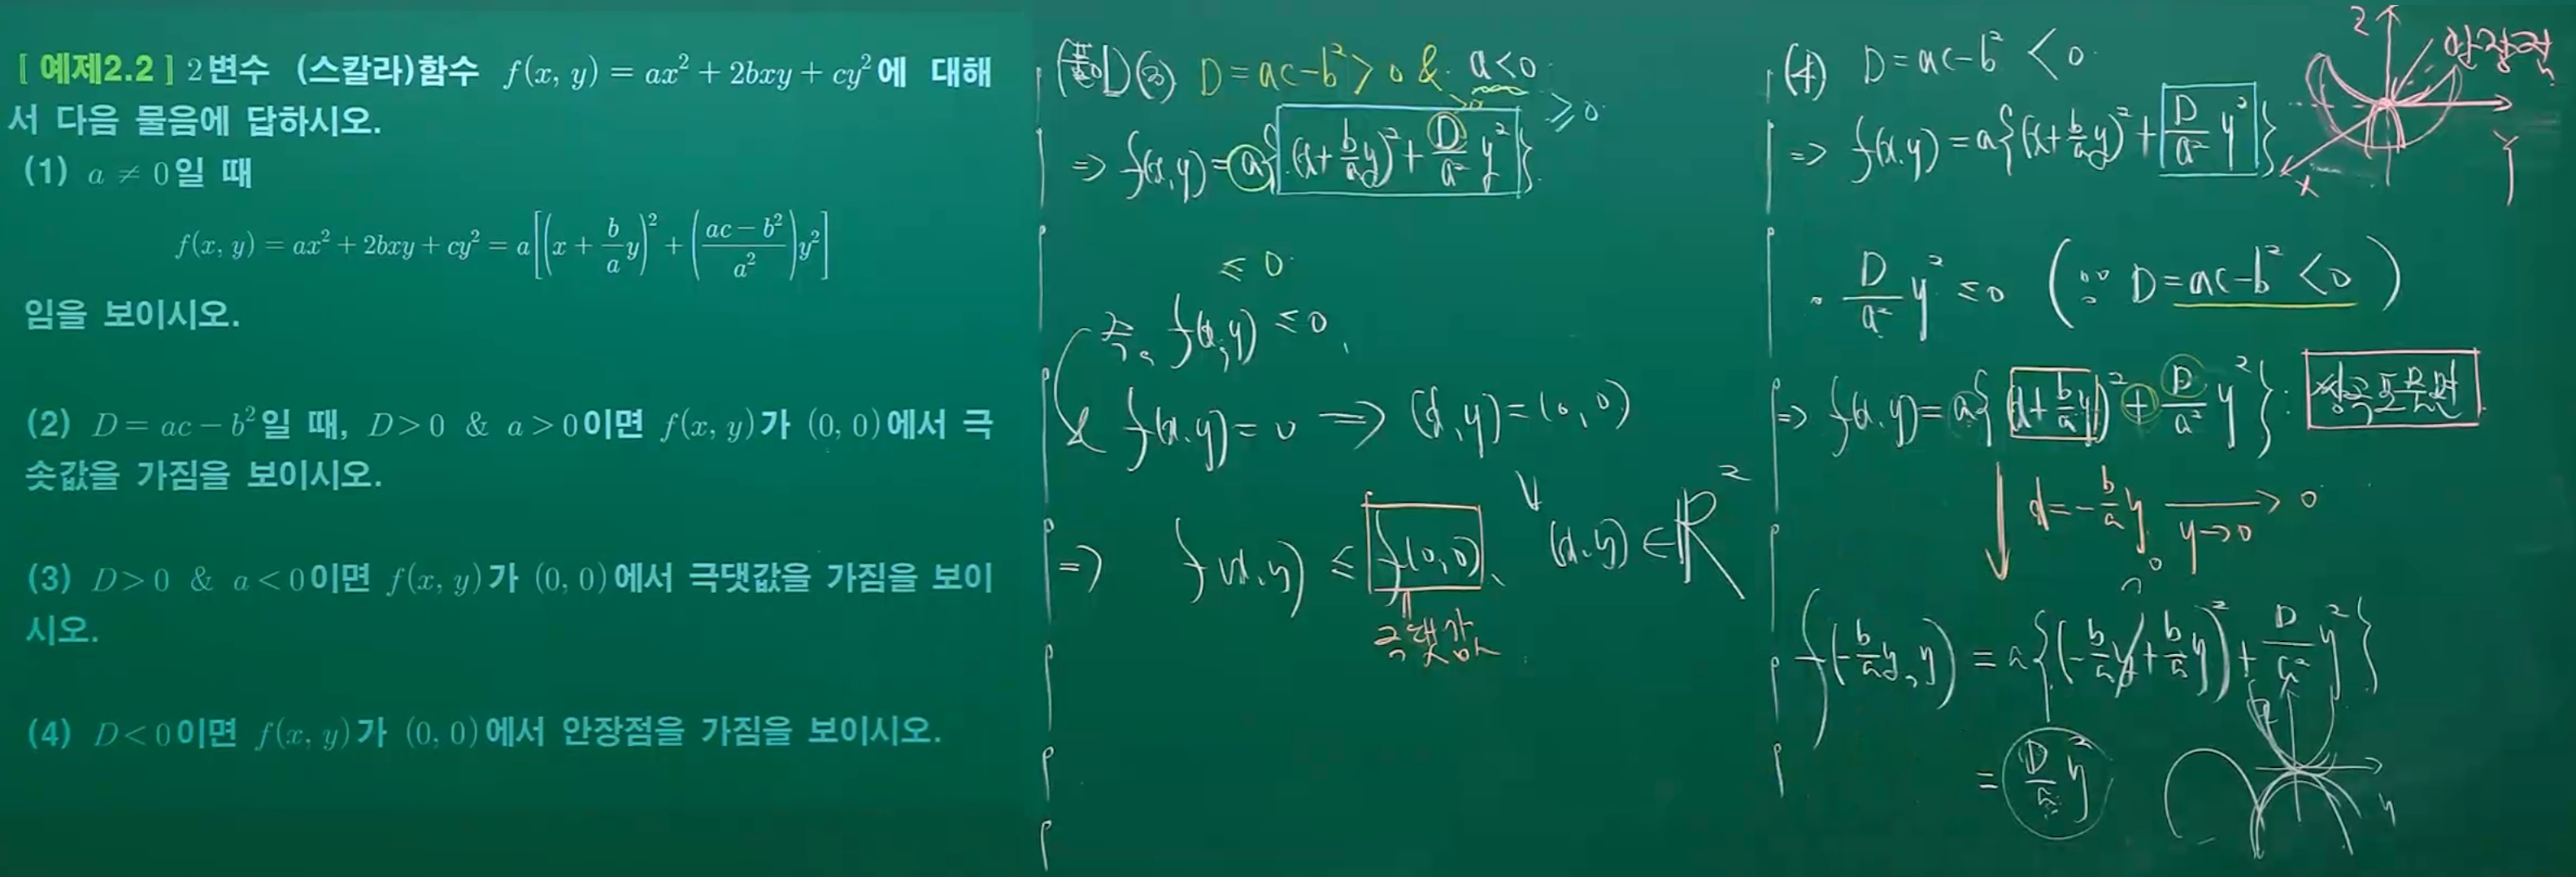 [ 예제2.2 ] 2변수 (스칼라)함수 f(x, y) = ax² + 2bxy + cy²에 대해
서 다음 물음에 답하시오.
(1) a ≠ 0일 때
f(x, y) = ax² + 2bxy + cy² = a[(x + b/a y)² + ((ac − b²)/a²)y²]
임을 보이시오.
(2) D = ac − b²일 때, D > 0 & a > 0이면 f(x, y)가 (0, 0)에서 극
솟값을 가짐을 보이시오.
(3) D > 0 & a < 0이면 f(x, y)가 (0, 0)에서 극댓값을 가짐을 보이
시오.
(4) D < 0이면 f(x, y)가 (0, 0)에서 안장점을 가짐을 보이시오.
(3) D = ac − b² > 0 & a < 0
> 0
⇒ f(x, y) = a{(x + b/a y)² + D/a² y²} ≥ 0
≤ 0
즉, f(x, y) ≤ 0,
& f(x, y) = 0 ⇒ (x, y) = (0, 0)
⇒ f(x, y) ≤ f(0, 0), ∀(x, y) ∈ ℝ²
극댓값
(4) D = ac − b² < 0
⇒ f(x, y) = a{(x + b/a y)² + D/a² y²}
z
안장점
x
y
D/a² y² ≤ 0 (∵ D = ac − b² < 0)
⇒ f(x, y) = a{(x + b/a y)² + D/a² y²} : 쌍곡포물면
x = −b/a y → 0
y→0
0
f(−b/a y, y) = a{(−b/a y + b/a y)² + D/a² y²}
= D/a y²
z
y